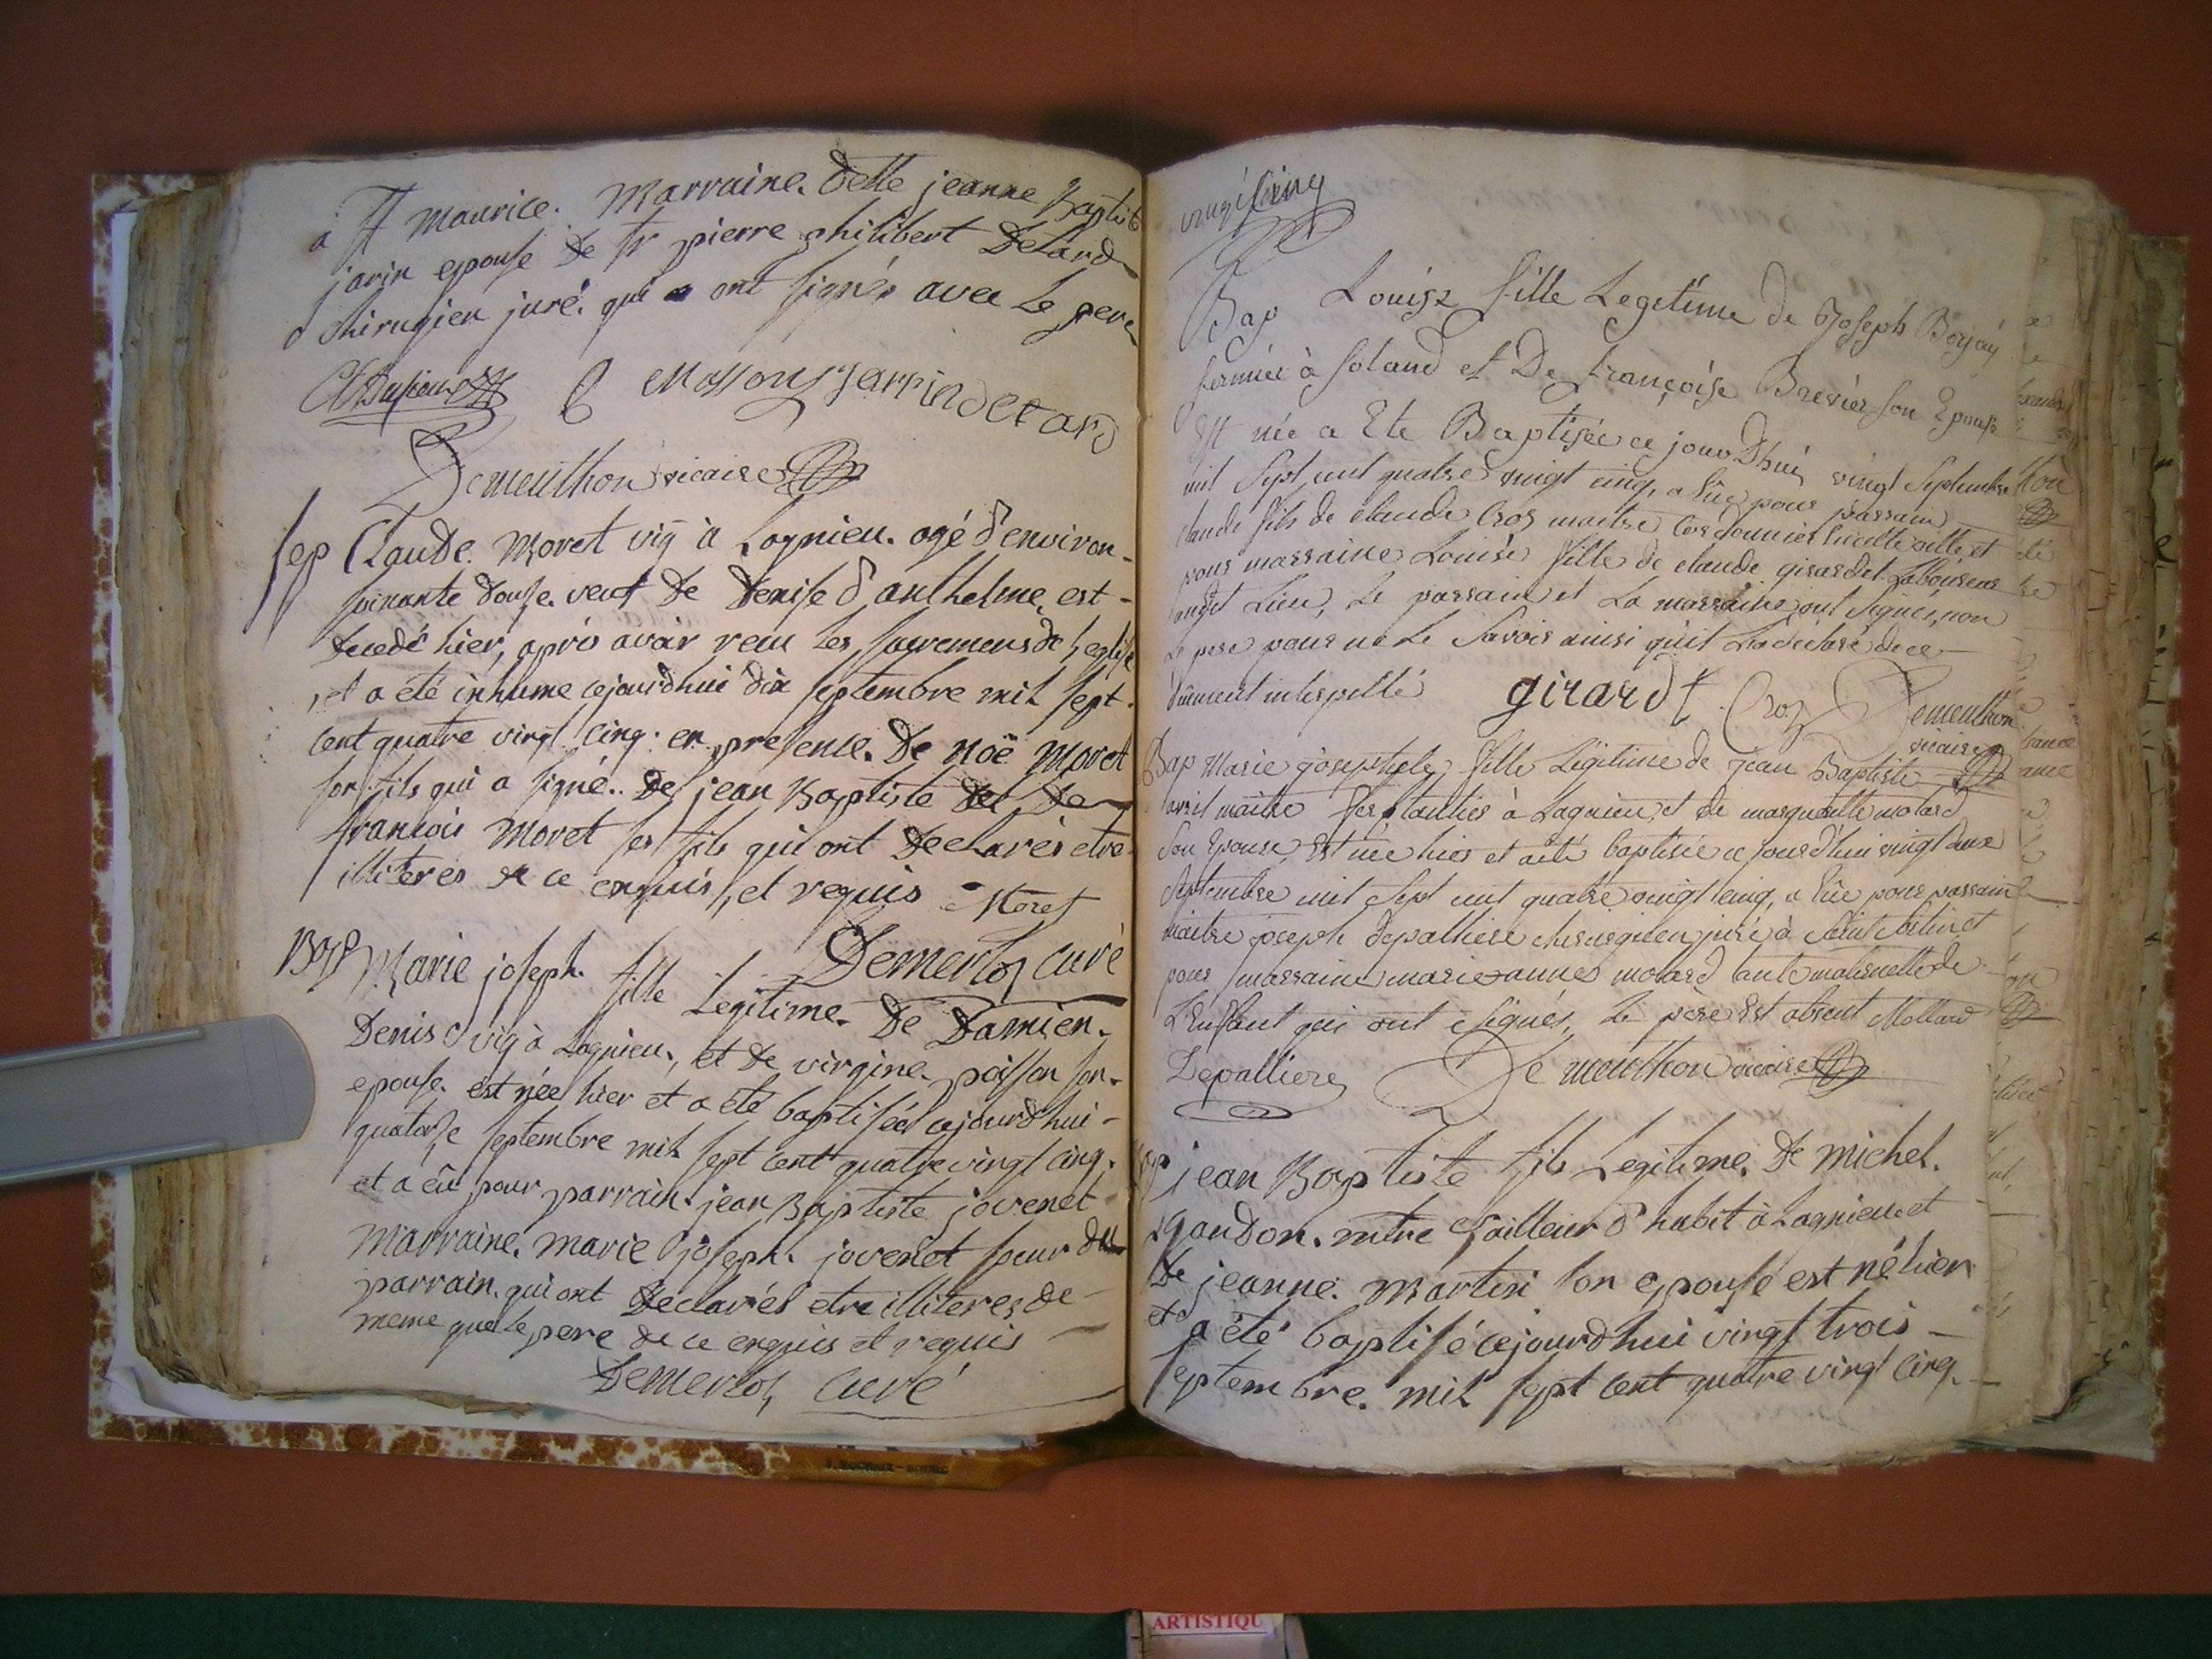 à St maurice. Marraine. delle jeanne Baptiste
jarin epouse de sr pierre philibert Delard
chirugien juré. qui ont signés avec Le pere
Massony jarrin delard
Demeuthon vicaire
sep Claude. Moret vig à Lagnieu. agé d'environ
soixante douse. veuf de Denise d'anthelme, est
decedé hier, après avoir recu les sacremens de l'eglise
, et a été inhumé cejourdhui dix septembre mil sept
cent quatre vingt cinq. en presence. De noë Moret
son fils qui a signé.. De jean Baptiste de
francois Moret ses fils qui ont declarés etre
illiterés de ce enquis, et requis Moret
Demerloz curé
Bap Marie joseph. fille Legitime. De Damien.
Denis vig à Lagnieu., et De virgine. poisson son.
epouse. est née hier et a été baptisée cejourdhui
quatorse septembre mil sept cent quatre vingt cinq.
et a eû pour parrain. jean Baptiste jovenet
Marraine. marie joseph. jovenet soeur du
parrain. qui ont declarés etre illiteres de
meme que le pere de ce enquis et requis
Demerloz Curé
vingt cinq
Bap Louise fille Legetime de Joseph Borjay
fermier à soland et De françoise Brevier son Epouse
Est née a Ete Baptisée ce jourDhui vingt Septembre
mil Sept cent quatre vingt cinq, a Eüe pour parrain
claude fils de claude Croz maitre Cordonnier en cette ville, et
pour marraine Louise fille de claude girardet Laboureur
audit Lieu, Le parrain et La marraine ont Signés, non
Le pere pour ne Le Savoir ainsi qu'il L'a déclaré de ce
dûment interpellé girardt Croz Demeuthon
vicaire
Bap Marie josephte fille Légitime de jean Baptiste
avril maitre ferblantier à Lagnieu, et de marguerite molard
Son Epouse, Est née hier et a été baptisée ce jourd'hui vingt deux
Septembre mil Sept cent quatre vingt cinq, a Eüe pour parrain
maitre joseph depalliere chirurgien juré à Saint Sorlin et
pour marraine marie anne molard tante maternelle de
L'Enfant qui ont Signés, Le père Est absent Mollard
Depalliere Demeuthon vicaire
Bap jean Baptiste fils Legitime. De michel.
gaudon. mtre tailleur d'habit à Lagnieu et
De jeanne. Martin son epouse est né hier
et a été baptisé cejourdhui vingt trois
septembre. mil sept cent quatre vingt cinq.
ARTISTIQU